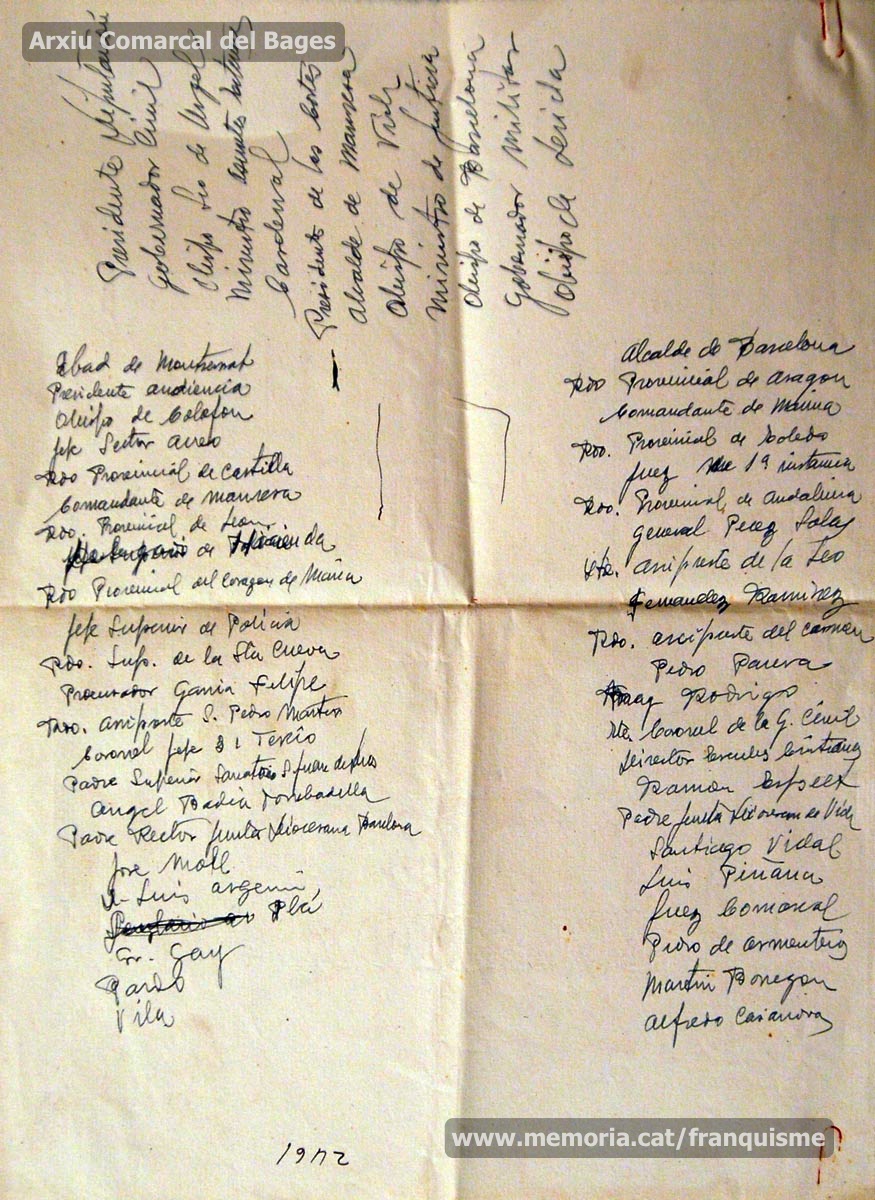 Arxiu Comarcal del Bages
Presidente Diputación
Gobernador Civil
Obispo Seo de Urgel
Ministro Asuntos
Cardenal
Presidente de las Cortes
Alcalde de Manresa
Obispo de Vich
Ministro de Justicia
Obispo de Barcelona
Gobernador Militar
Obispo de Lerida
Abad de Montserrat
Presidente audiencia
Obispo de Colofon
Jefe Sector aereo
Rdo Provincial de Castilla
Comandante de Manresa
Rdo. Provincial de Leon
de Hacienda
Rdo Provincial del Corazon de Maria
Jefe Superior de Policia
Rdo. Sup. de la Sta Cueva
Procurador Garcia Felipe
Rdo. arcipreste S. Pedro Martir
Coronel Jefe 31 Tercio
Padre Superior Sanatorio S. Juan de Dios
Angel Badia Tombadella
Padre Rector Junta Diocesana Barcelona
Jose Moll
Luis argemi,
Plá
Sr. Gay
Pardo
Vila
Alcalde de Barcelona
Rdo Provincial de Aragon
Comandante de Marina
Rdo. Provincial de Toledo
Juez de 1ª instancia
Rdo. Provincial de Andalucia
General Perez Salas
arcipreste de la Seo
Fernandez Ramirez
Rdo. arcipreste del Carmen
Pedro Parera
Rodrigo
Coronel de la G. Civil
Director Escuelas Cristianas
Ramon Espelt
Padre Junta Diocesana de Vich
Santiago Vidal
Luis Piñana
Juez Comarcal
Pedro de Armenteros
Martin Borregon
Alfredo Casanova
1942
www.memoria.cat/franquisme